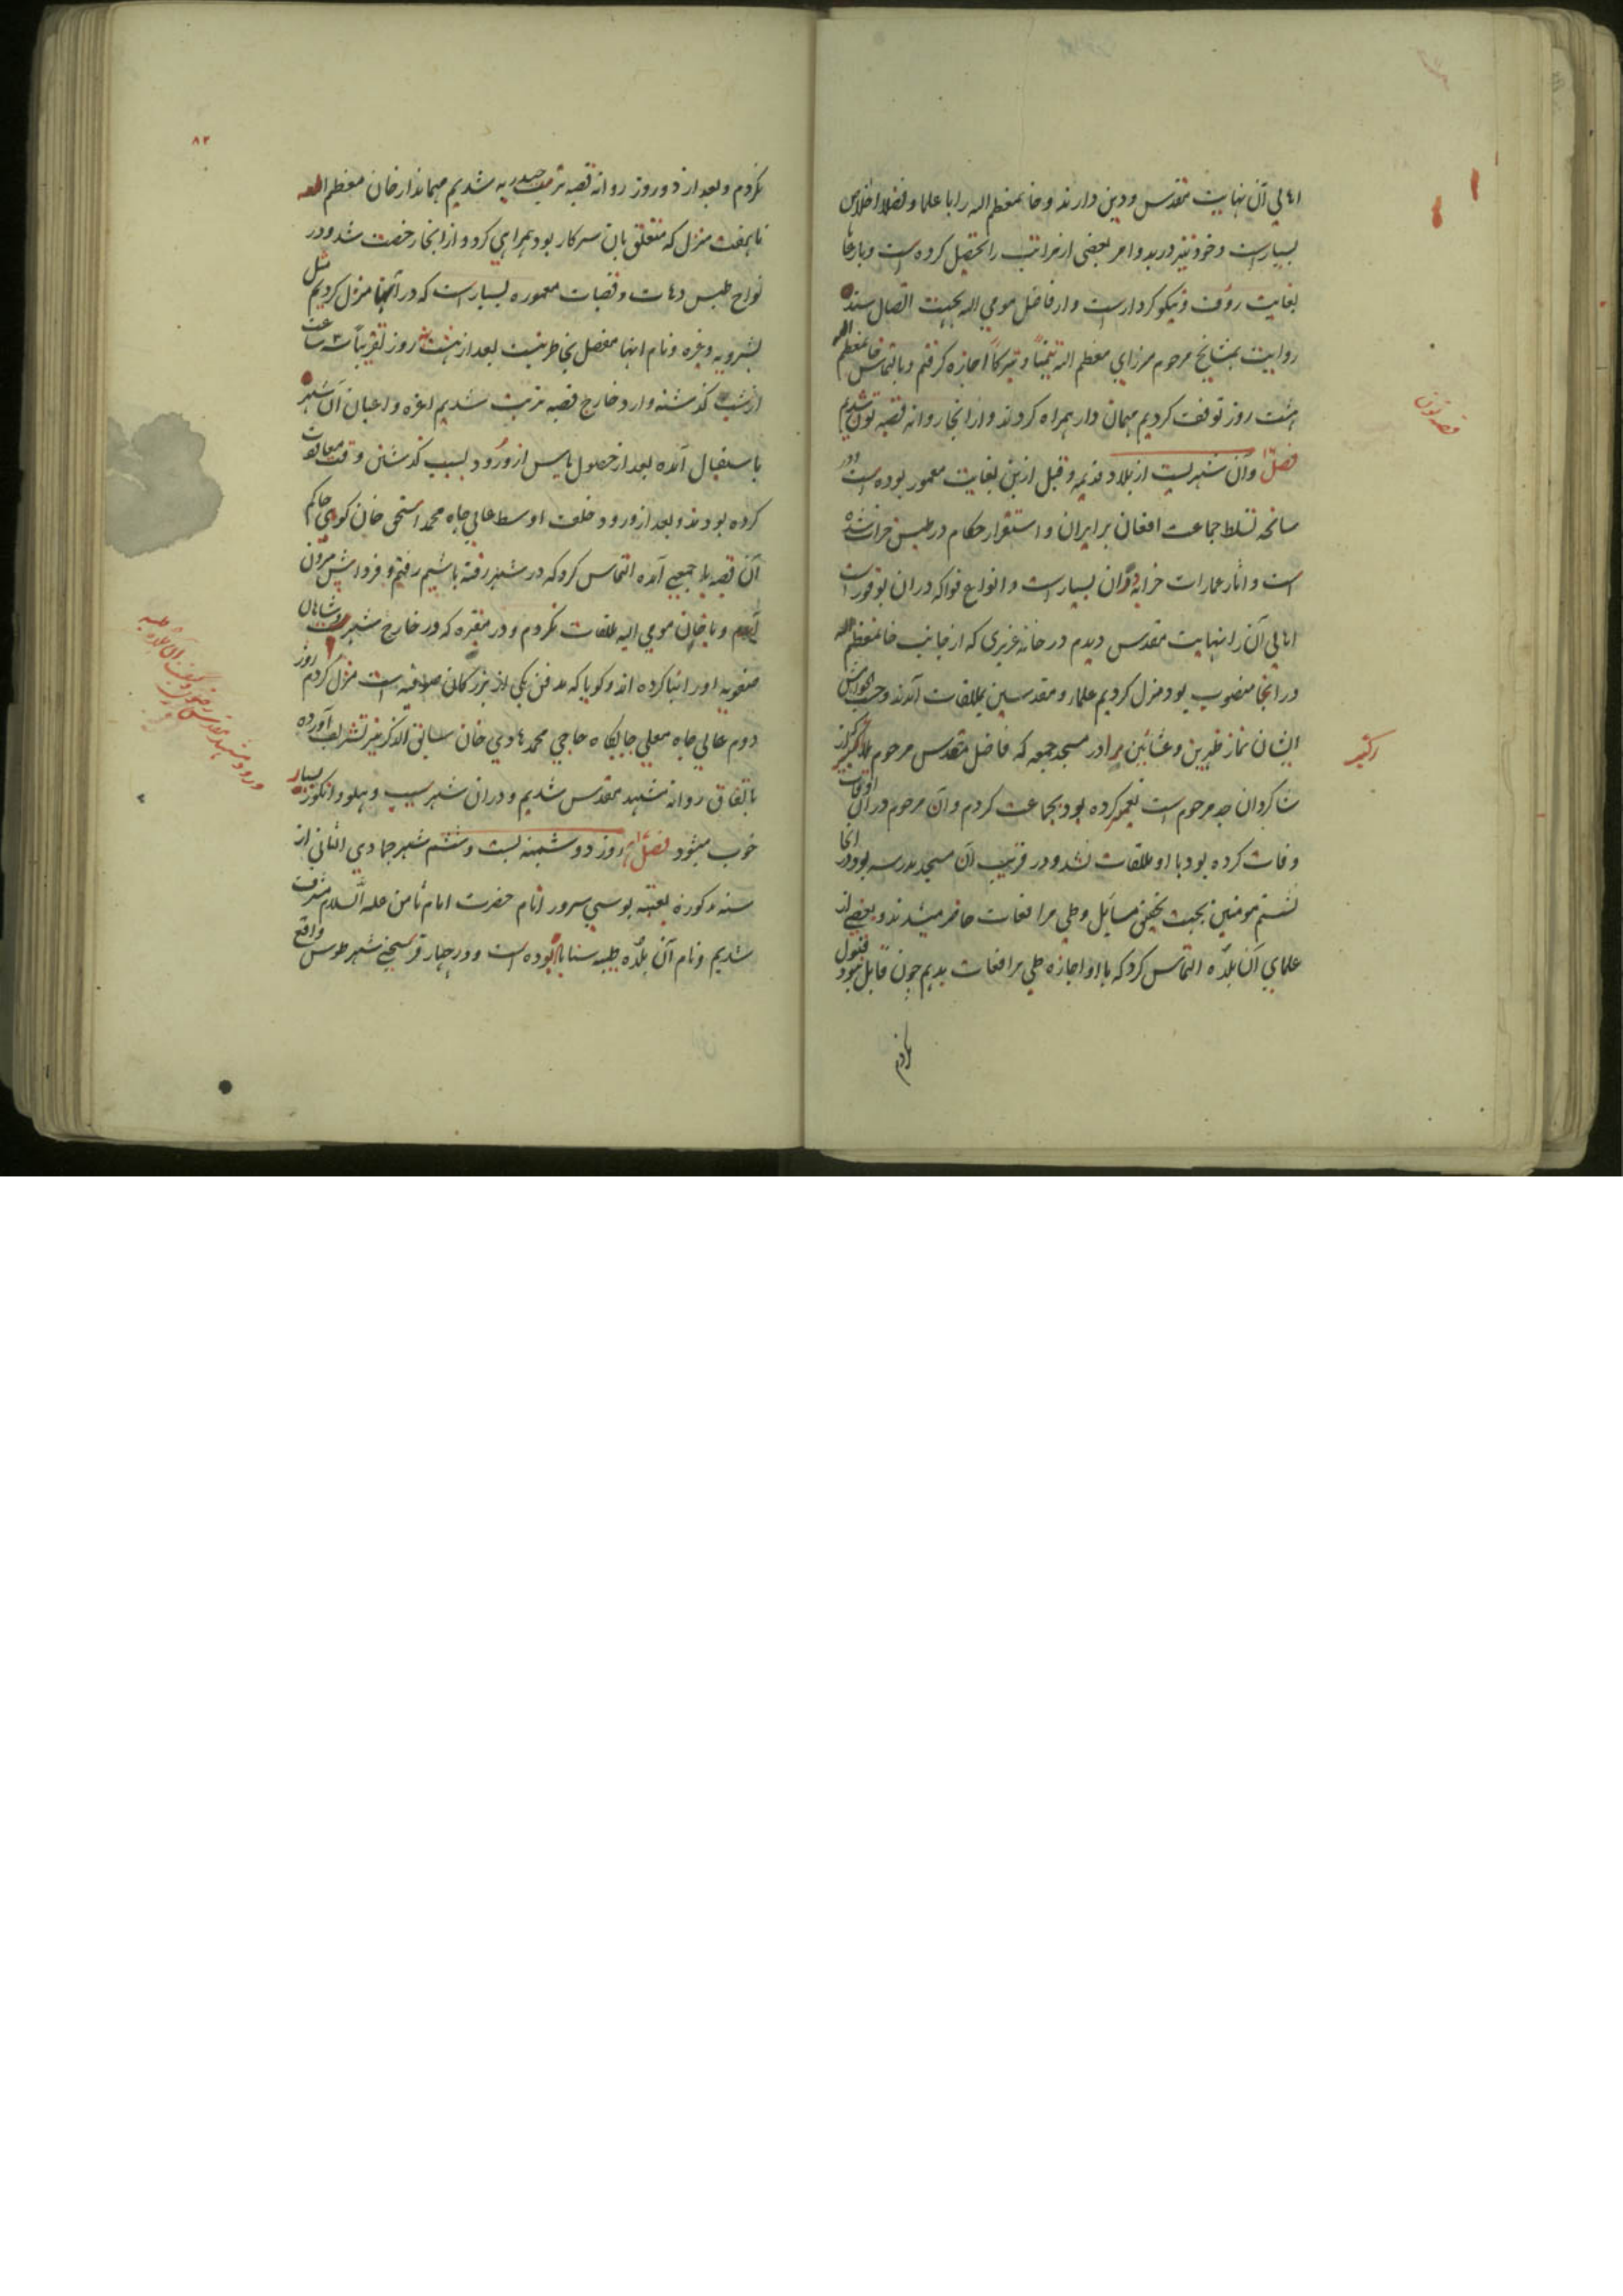 اهالی آن نهایت مقدس و دین دارند و خانمعظم الیه را با علما و فضلا اخلاص
بسیارست و خود نیز در بدو امر بعضی از مراتب را تحصیل کرده است و با رعایا
بغایت رؤف و نیکو کردارست و از فاضل مومی الیه بجهت اتصال سند
روایت بمشایخ مرحوم میرزای معظم الیه تیمنا و تبرکا اجازه گرفتم و بالتماس خانمعظم الیه
هشت روز توقف کردیم مهمان دار همراه کردند و از انجا روانه قصبه تون شدیم
قصبه تون
فصل و آن شهریست از بلاد قدیمه و قبل ازین بغایت معمور بوده است و در
سانحه تسلط جماعت افغان بر ایران و استقرار حکام در طبس خراب شده
است و اثار عمارات خرابه در آن بسیار است و انواع فواکه در ان بوفور است
اهالی آن را نهایت مقدس دیدم در خانه عزیزی که از جانب خانمعظم الیه
در انجا منصوب بود منزل کردیم علما و مقدسین بملاقات آمدند و حسب خواهش
ایشان نماز ظهرین و عشائین را در مسجد جمعه که فاضل مقدس مرحوم ملا اکبر از
اکبر
شاگردان جد مرحوم است تعمیر کرده بود بجماعت کردم و آن مرحوم در آن اوقات
وفات کرده بود با او ملاقات نشد و در قریب آن مسجد مدرسه بود در انجا
نشستم مومنین بجهت تحقیق مسایل و طی مرافعات حاضر میشدند و بعضی از
علمای آن بلده التماس کرد که باو اجازه طی مرافعات بدهم چون قابل نبود قبول
۸۲
نکردم و بعد از دو روز روانه قصبه تربت حیدریه شدیم مهماندار خان معظم الیه
تا هفت منزل که متعلق بان سرکار بود همراهی کرد و از انجا رخصت شد و در
نواح طبس دهات و قصبات معموره بسیار است که در آنها منزل کردیم مثل
بشرویه و غیره و نام اینها مفصل بخاطر نیست بعد از هشت روز تقریبا ۳ ساعت
از شب گذشته وارد خارج قصبه تربت شدیم اعزه و اعیان آن شهر
باستقبال آمده بعد از حصول یاس از ورود بسبب گذشتن وقت معاودت
کرده بودند و بعد از ورود خلف اوسط عالی جاه محمد اسحق خان حاکم
آن قصبه با جمعی آمده التماس کرد که در شهر رفته باشیم رفتم و فرداش بیرون
آمدم و با خان مومی الیه ملاقات نکردم و در مقبره که در خارج شهر است و شاهان
صفویه او را بنا کرده اند و گویا که مدفن یکی از بزرگان صوفیه است منزل کردم روز
دوم عالی جاه معلی جایگاه حاجی محمد هادی خان سابق الذکر نیز تشریف آورده
باتفاق روانه مشهد مقدس شدیم و در ان شهر سیب و هلو و انگور بسیار
خوب میشود فصل روز دوشنبه بیست و ششم شهر جمادی الثانی از
سنه مذکوره بعتبه بوسی سرور انام حضرت امام ثامن علیه السلام مشرف
شدیم و نام آن بلده طیبه سناباد بوده است و در چهار فرسخی شهر طوس واقع